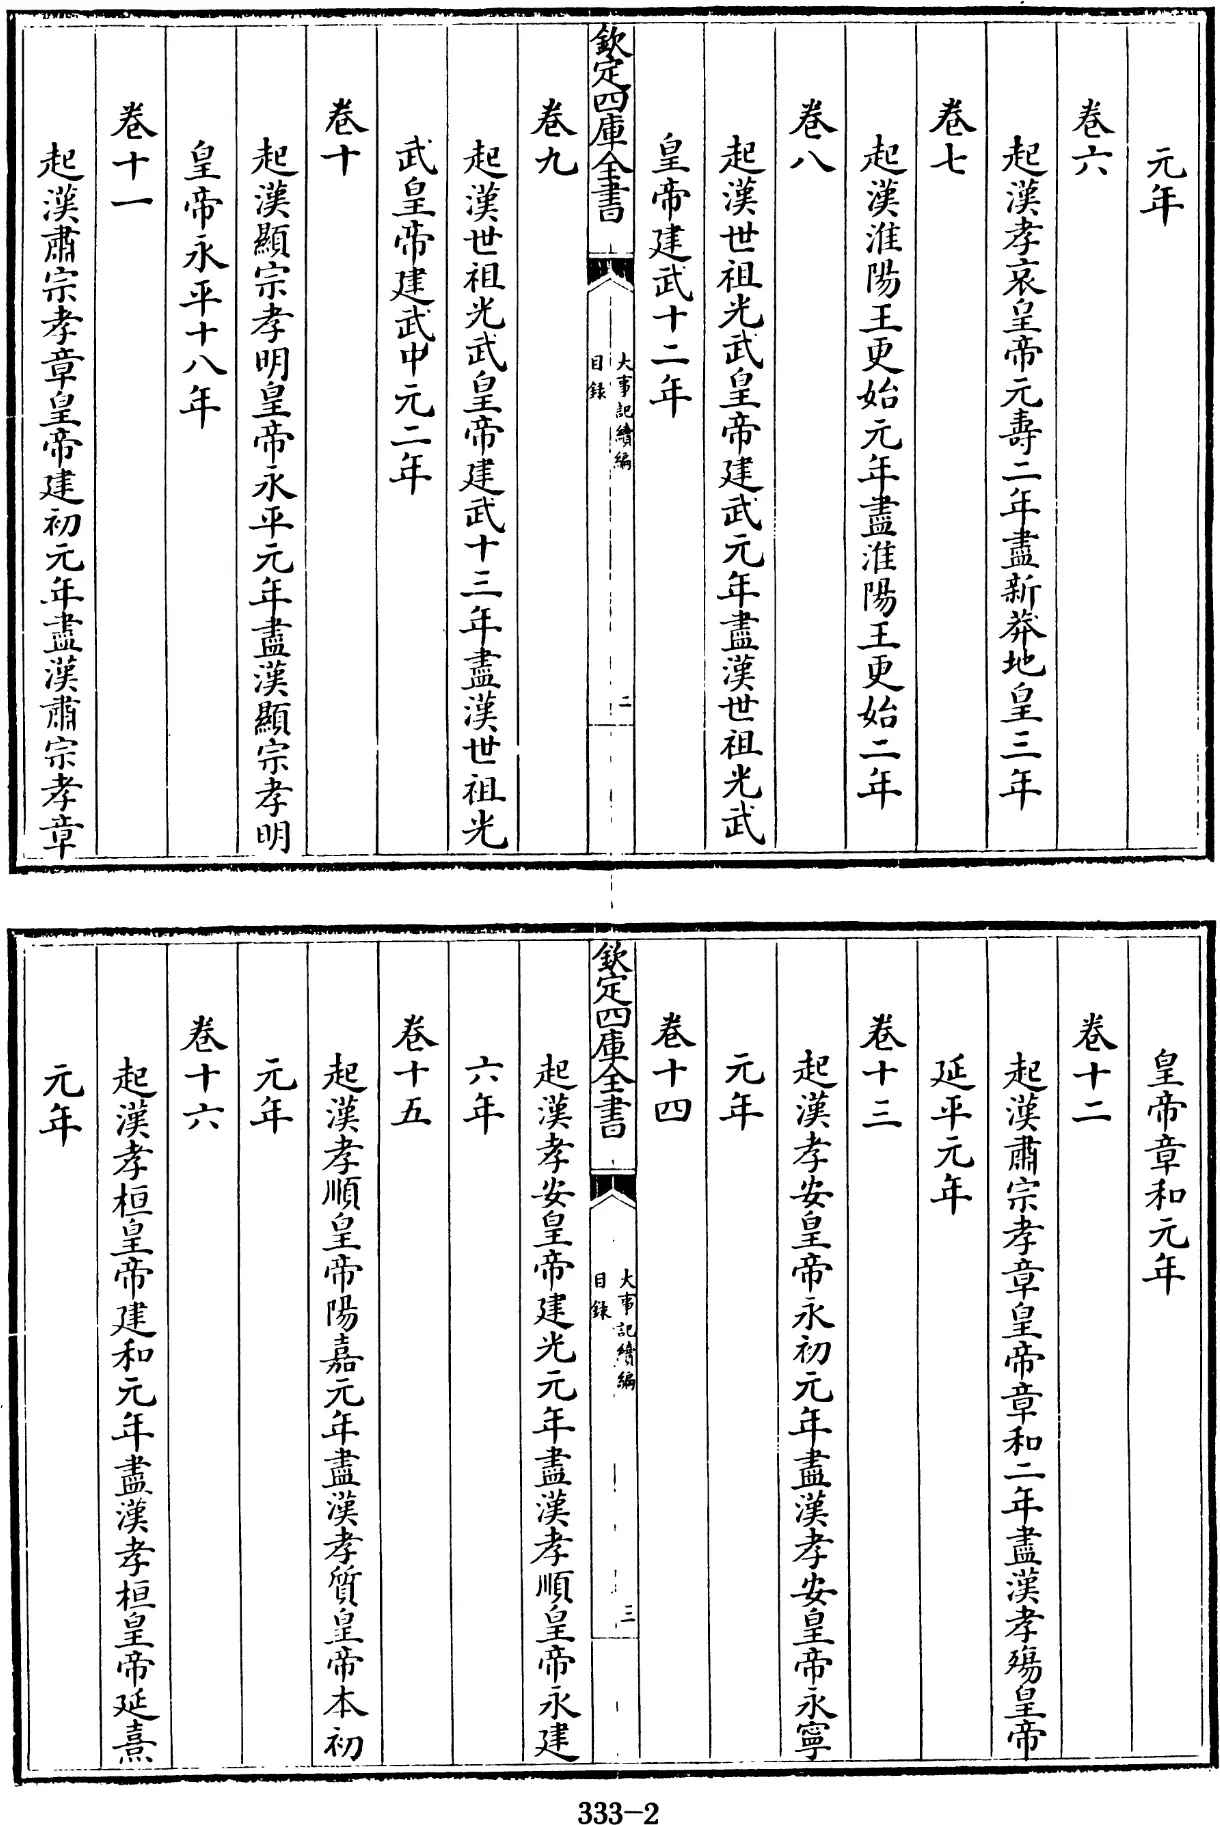 元年
卷六
起漢孝哀皇帝元壽二年盡新莽地皇三年
卷七
起漢淮陽王更始元年盡淮陽王更始二年
卷八
起漢世祖光武皇帝建武元年盡漢世祖光武
皇帝建武十二年
欽定四庫全書
大事記續編
目錄
二
卷九
起漢世祖光武皇帝建武十三年盡漢世祖光
武皇帝建武中元二年
卷十
起漢顯宗孝明皇帝永平元年盡漢顯宗孝明
皇帝永平十八年
卷十一
起漢肅宗孝章皇帝建初元年盡漢肅宗孝章
皇帝章和元年
卷十二
起漢肅宗孝章皇帝章和二年盡漢孝殤皇帝
延平元年
卷十三
起漢孝安皇帝永初元年盡漢孝安皇帝永寧
元年
卷十四
欽定四庫全書
大事記續編
目錄
三
起漢孝安皇帝建光元年盡漢孝順皇帝永建
六年
卷十五
起漢孝順皇帝陽嘉元年盡漢孝質皇帝本初
元年
卷十六
起漢孝桓皇帝建和元年盡漢孝桓皇帝延熹
元年
333-2